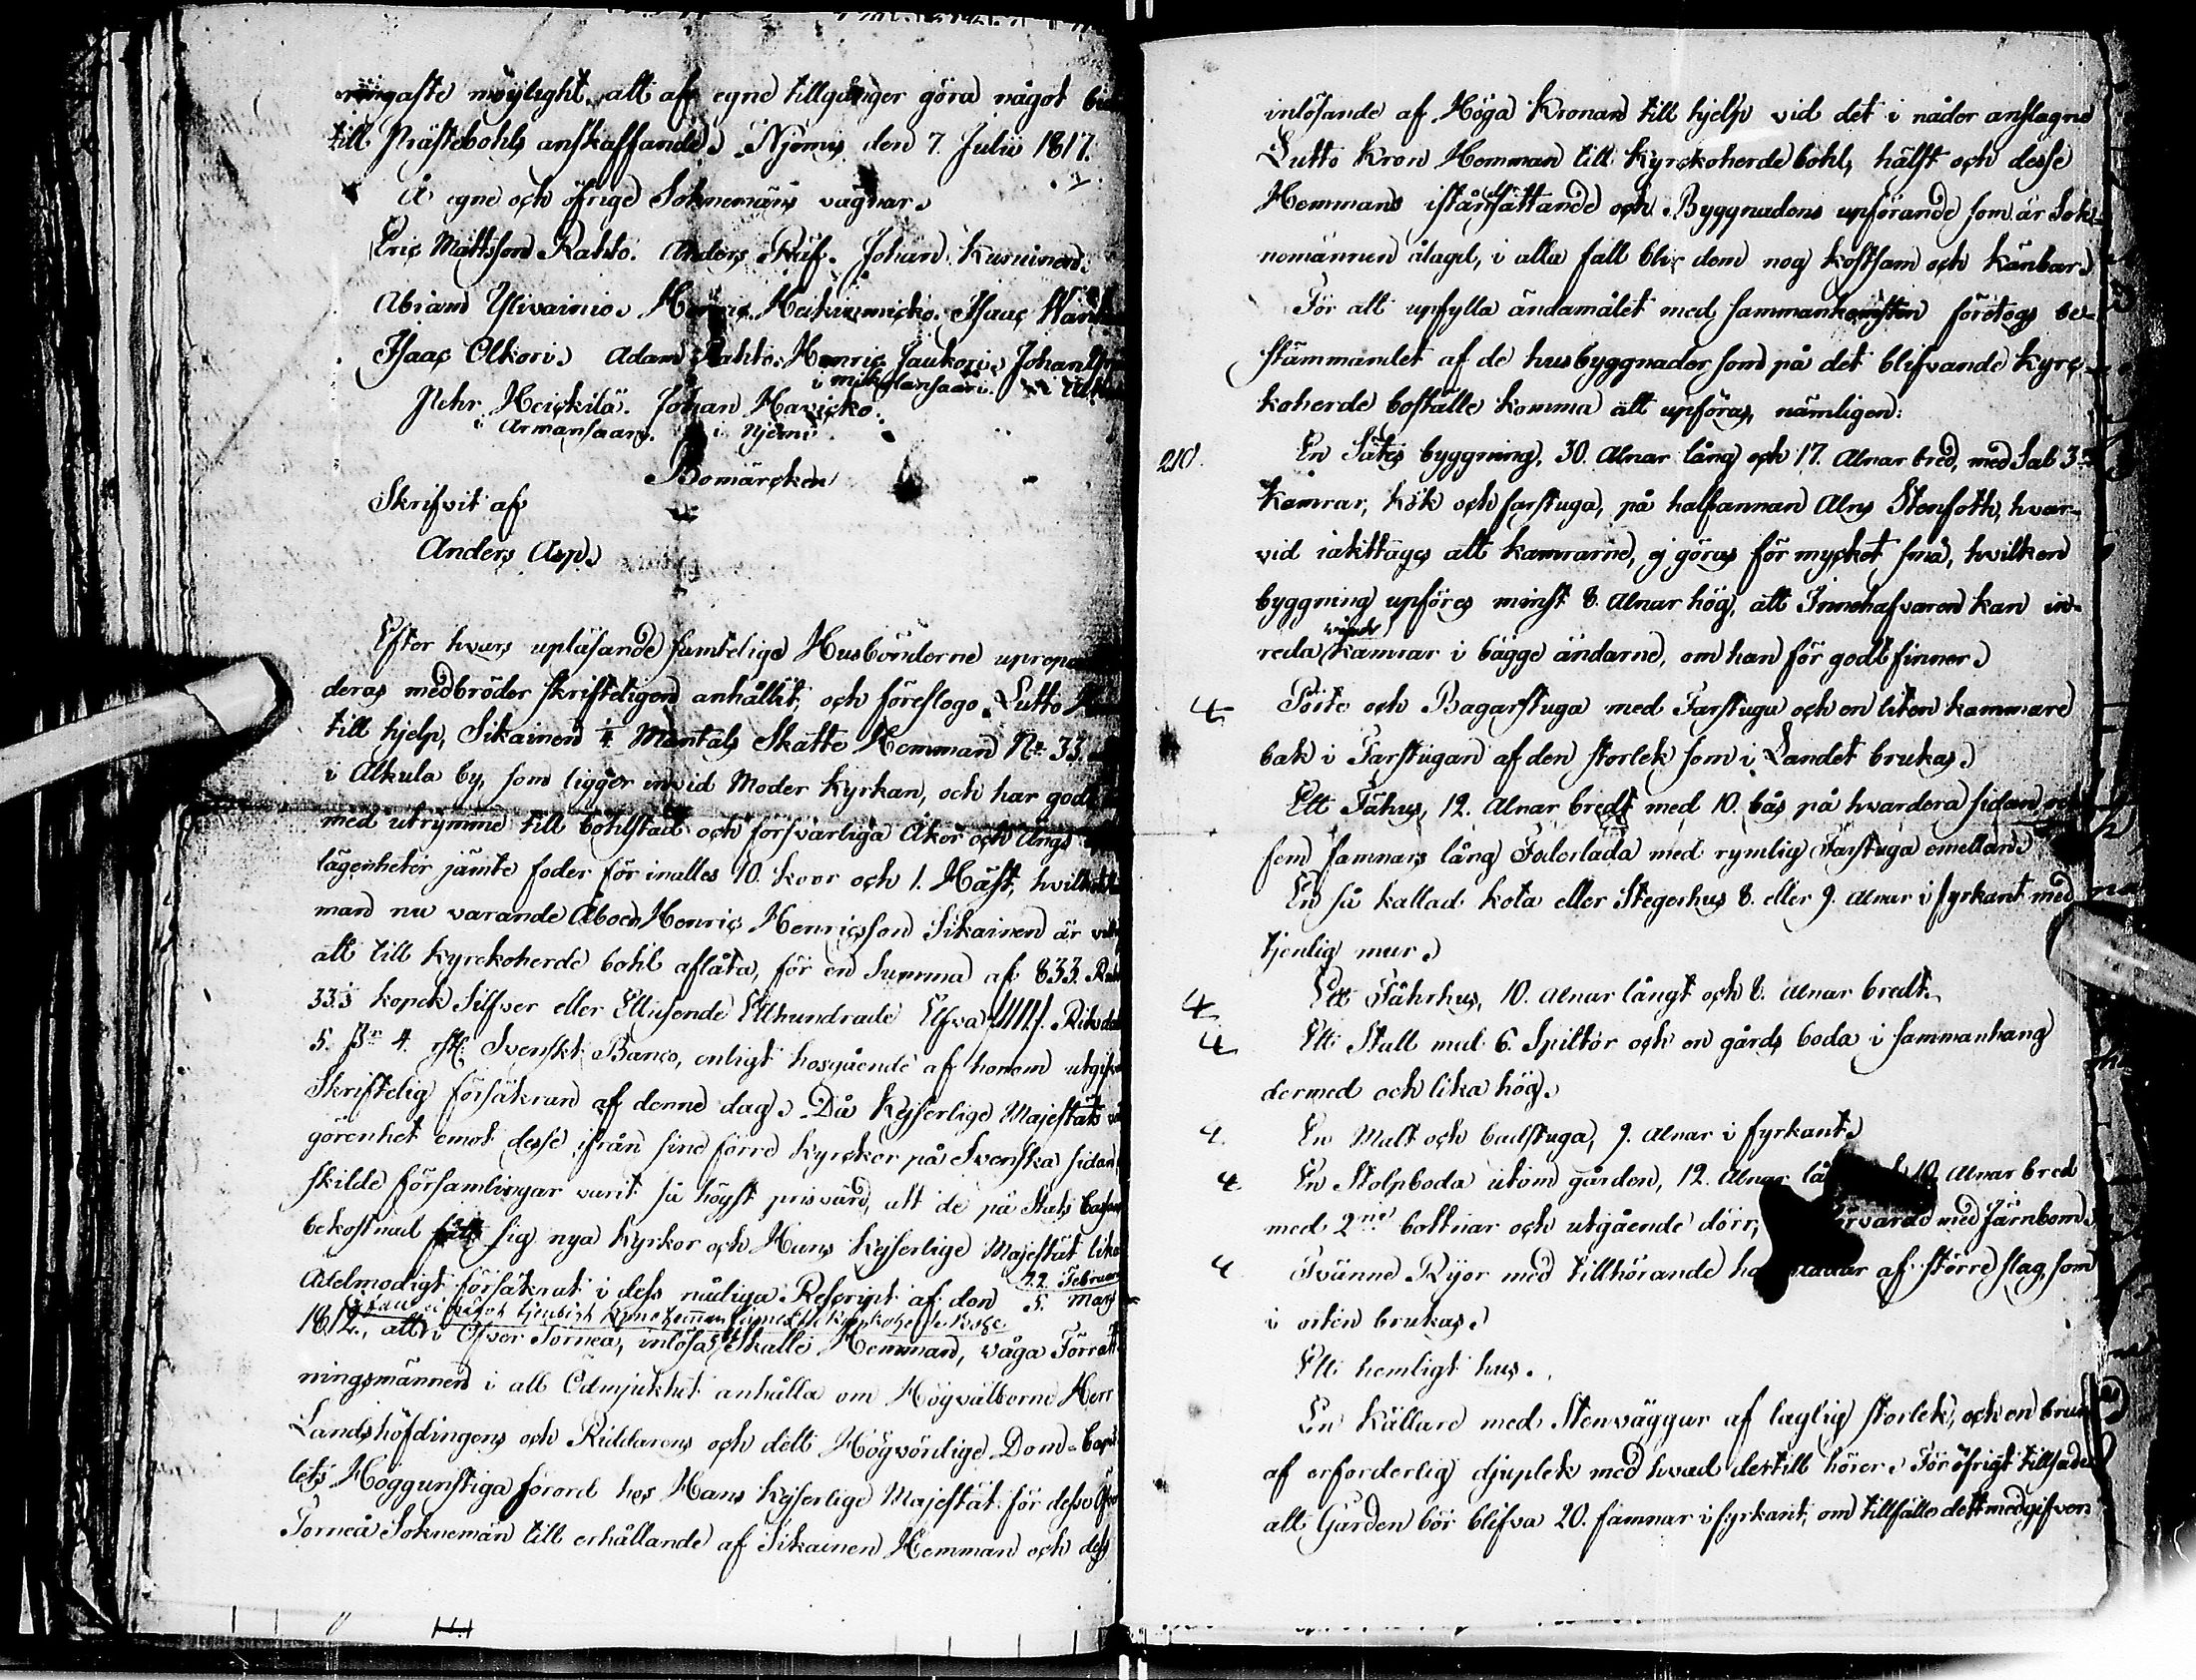 ringaste möjlighet, att af egne tillgånger göra något
till Prästebohls anskaffande. Njemis den 7. Julii 1817.
Å egne och öfrige Soknemäns vägnar.
Eric Mattsson Rahto. Anders Räf. Johan Kusuinen.
Abram Ylivainio. Isaac
Isaac Olkori. Adam Rahto. Henric Jaukori. Johan
i mikolansaari.
Pehr Heickilä. Johan Havicko.
i Armansaari. i Njemi
Bomärcken
Skrifvit af
Anders Asp.
Efter hvars upläsande samtelige Husbönderne
deras medbröder skrifteligen anhållit, och föreslogo Lutto
till hjelp, Sikainen 1/4 Mantals Skatte Hemman No 33.
i Alkula by, som ligger invid Moder Kyrkan, och har godt
med utrymme till bohlstad och försvarliga Åker och Ängs
lägenheter jämte foder för inalles 10. kor och 1. Häst,
man nu varande Åboen Henric Henricsson Sikainen är
att till Kyrckoherde bohl aflåta, för en Summa af 833. Rub
33⅓ kopek Silfver eller Ettusende Etthundrade Elfva 1111. Riksdal
5. sk. 4. rst. Svenskt Banco, enligt hosgående af honom
Skriftelig försäkran af denne dag. Då Kejserlige Majestäts
görenhet emot desse ifrån sine förre Kyrckor på Svenska sidan
skilde församlingar varit så högst prisvärd, att de på Stats
bekostnad fått sig nya Kyrkor och Hans Kejserlige Majestät
Adelmodigt försäkrat i dess nådiga Rescript af den 22 Februar
5. Mars
1812., att i Öfver Torneå, inlösa Skatte Hemman, våga Förrätt
ningsmännen i all Ödmjukhet anhålla om Högvälborne Herr
Landshöfdingens och Riddarens och dett Högvördige Dom-Capi
lets Höggunstiga förord hos Hans Kejserlige Majestät för desse
Torneå Soknemän till erhållande af Sikainen Hemman och dess
inlösande af Höga Kronan till hjelp vid det i nåder anslagne
Lutto Kron Hemman till Kyrckoherde bohl, hälst och desse
Hemmans iståndsättande och Byggnadens upförande som är Sok-
nemännen ålagd, i alla fall blir dem nog kostsam och känbar.
För att upfylla ändamålet med sammankomsten företogs be-
stämmandet af de husbyggnader som på det blifvande Kyrc-
koherde boställe komma att upföras, nämligen:
210. En Sätes byggning, 30. Alnar lång och 17. Alnar bred, med Sal 3ne
kamrar, kök och farstuga, på halfannan Alns Stenfoth, hvar-
vid iakttages att kamrarne, ej göras för mycket små, hvilken
byggning upföres minst 8. Alnar hög, att Innehafvaren kan in-
vinds
reda kamrar i bägge ändarne, om han för godt finner.
4 Pörte och Bagarstuga med Farstugu och en liten kammare
bak i Farstugan af den storlek som i Landet brukas.
Ett Fähus, 12. Alnar bredt med 10. bås på hvardera sidan och
fem famnars lång Foderlada med rymlig Farstuga emellan.
En så kallad kota eller Stegerhus 8. eller 9. Alnar i fyrkant med
tjenlig mur.
4 Ett Fåhrhus, 10. Alnar långt och 8. Alnar bredt.
4 Ett Stall med 6. Spiltor och en gårds boda i sammanhang
dermed och lika hög.
4. En Malt och badstuga, 9. Alnar i fyrkant.
4. En Stolpboda utom gården, 12. Alnar 10. Alnar bred
med 2ne bottnar och utgående dörr, med Järnbom.
4 Tvänne Rijor med tillhörande af större slag, som
i orten brukas.
Ett hemligt hus.
En Källare med Stenväggar af laglig storlek, och en brun
af erforderlig djuplek med hvad dertill hörer. För öfrigt tillsades
att Gården bör blifva 20. famnar i fyrkant, om tillfälle dett medgifver